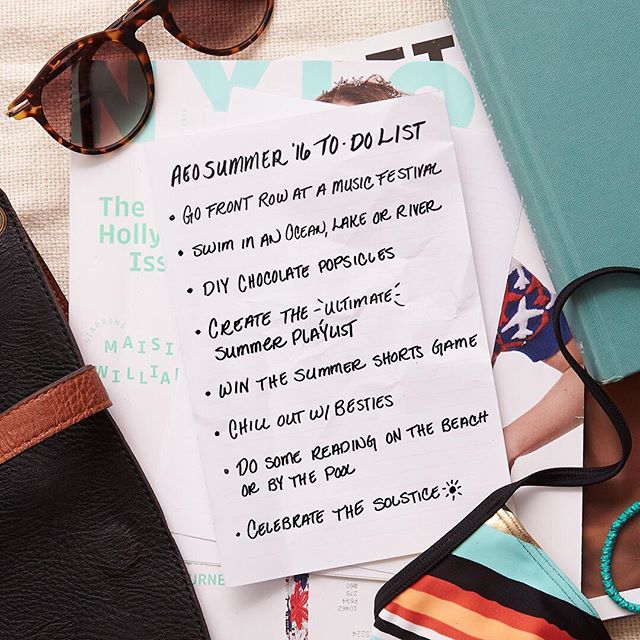 NYLO
The
Holly
Iss
STARRING
MAISI
WILLIA
AEO SUMMER '16 TO-DO LIST
• GO FRONT ROW AT A MUSIC FESTIVAL
• SWIM IN AN OCEAN, LAKE OR RIVER
• DIY CHOCOLATE POPSICLES
• CREATE THE ULTIMATE
SUMMER PLAYLIST
• WIN THE SUMMER SHORTS GAME
• CHILL OUT W/ BESTIES
• DO SOME READING ON THE BEACH
OR BY THE POOL
• CELEBRATE THE SOLSTICE
URNE
10462
P694
275
60
5224